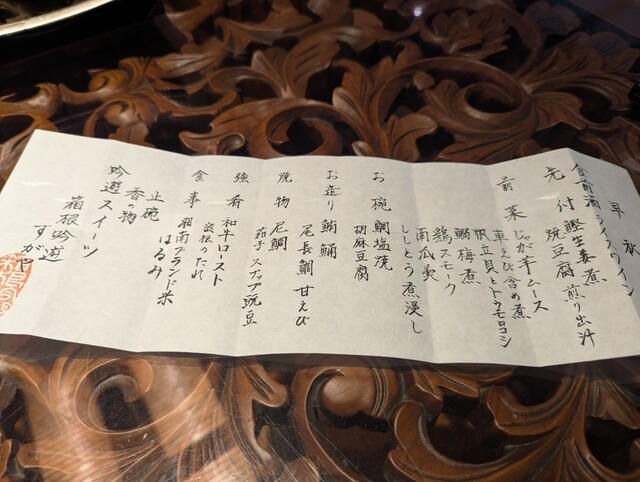 早秋
食前酒 シイクワイン
先付 鰹生姜煮
豌豆腐 煎り出汁
前菜 じゃが芋ムース
車えび含め煮
帆立貝とトウモロコシ
鰯梅煮
鶏スモーク
南瓜羹
ししとう煮浸し
お椀 鯛塩焼
胡麻豆腐
お造り 鮪 鯒
尾長鯛 甘えび
焼物 尼鯛
茄子 スナップ豌豆
強肴 和牛ロースト
淡板のたれ
食事 湘南ブランド米
はるみ
止碗
香の物
吟遊スイーツ
箱根吟遊
すがや